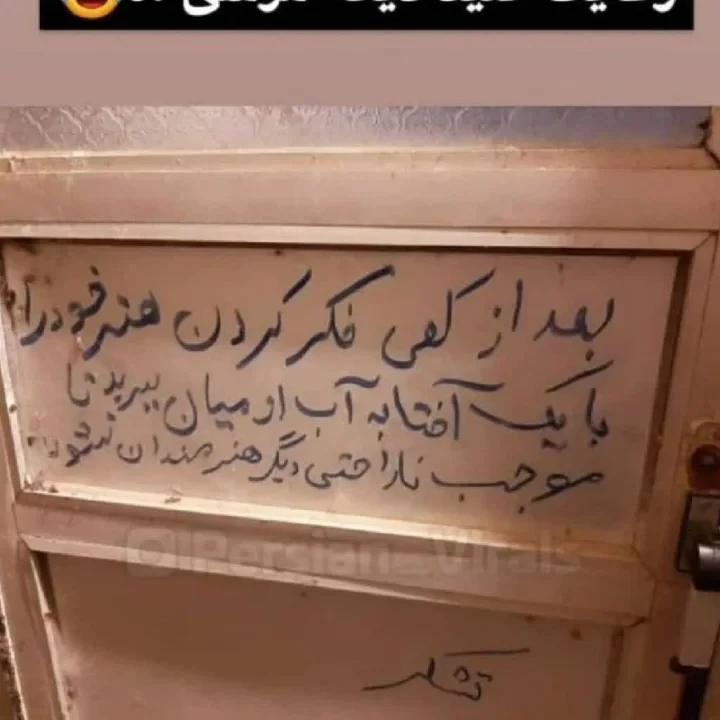 بعد از کمی فکر کردن هنر خود را
با یک آفتابه آب از میان ببرید تا
موجب ناراحتی دیگر هنرمندان نشود
@Persian_Virals
تشکر